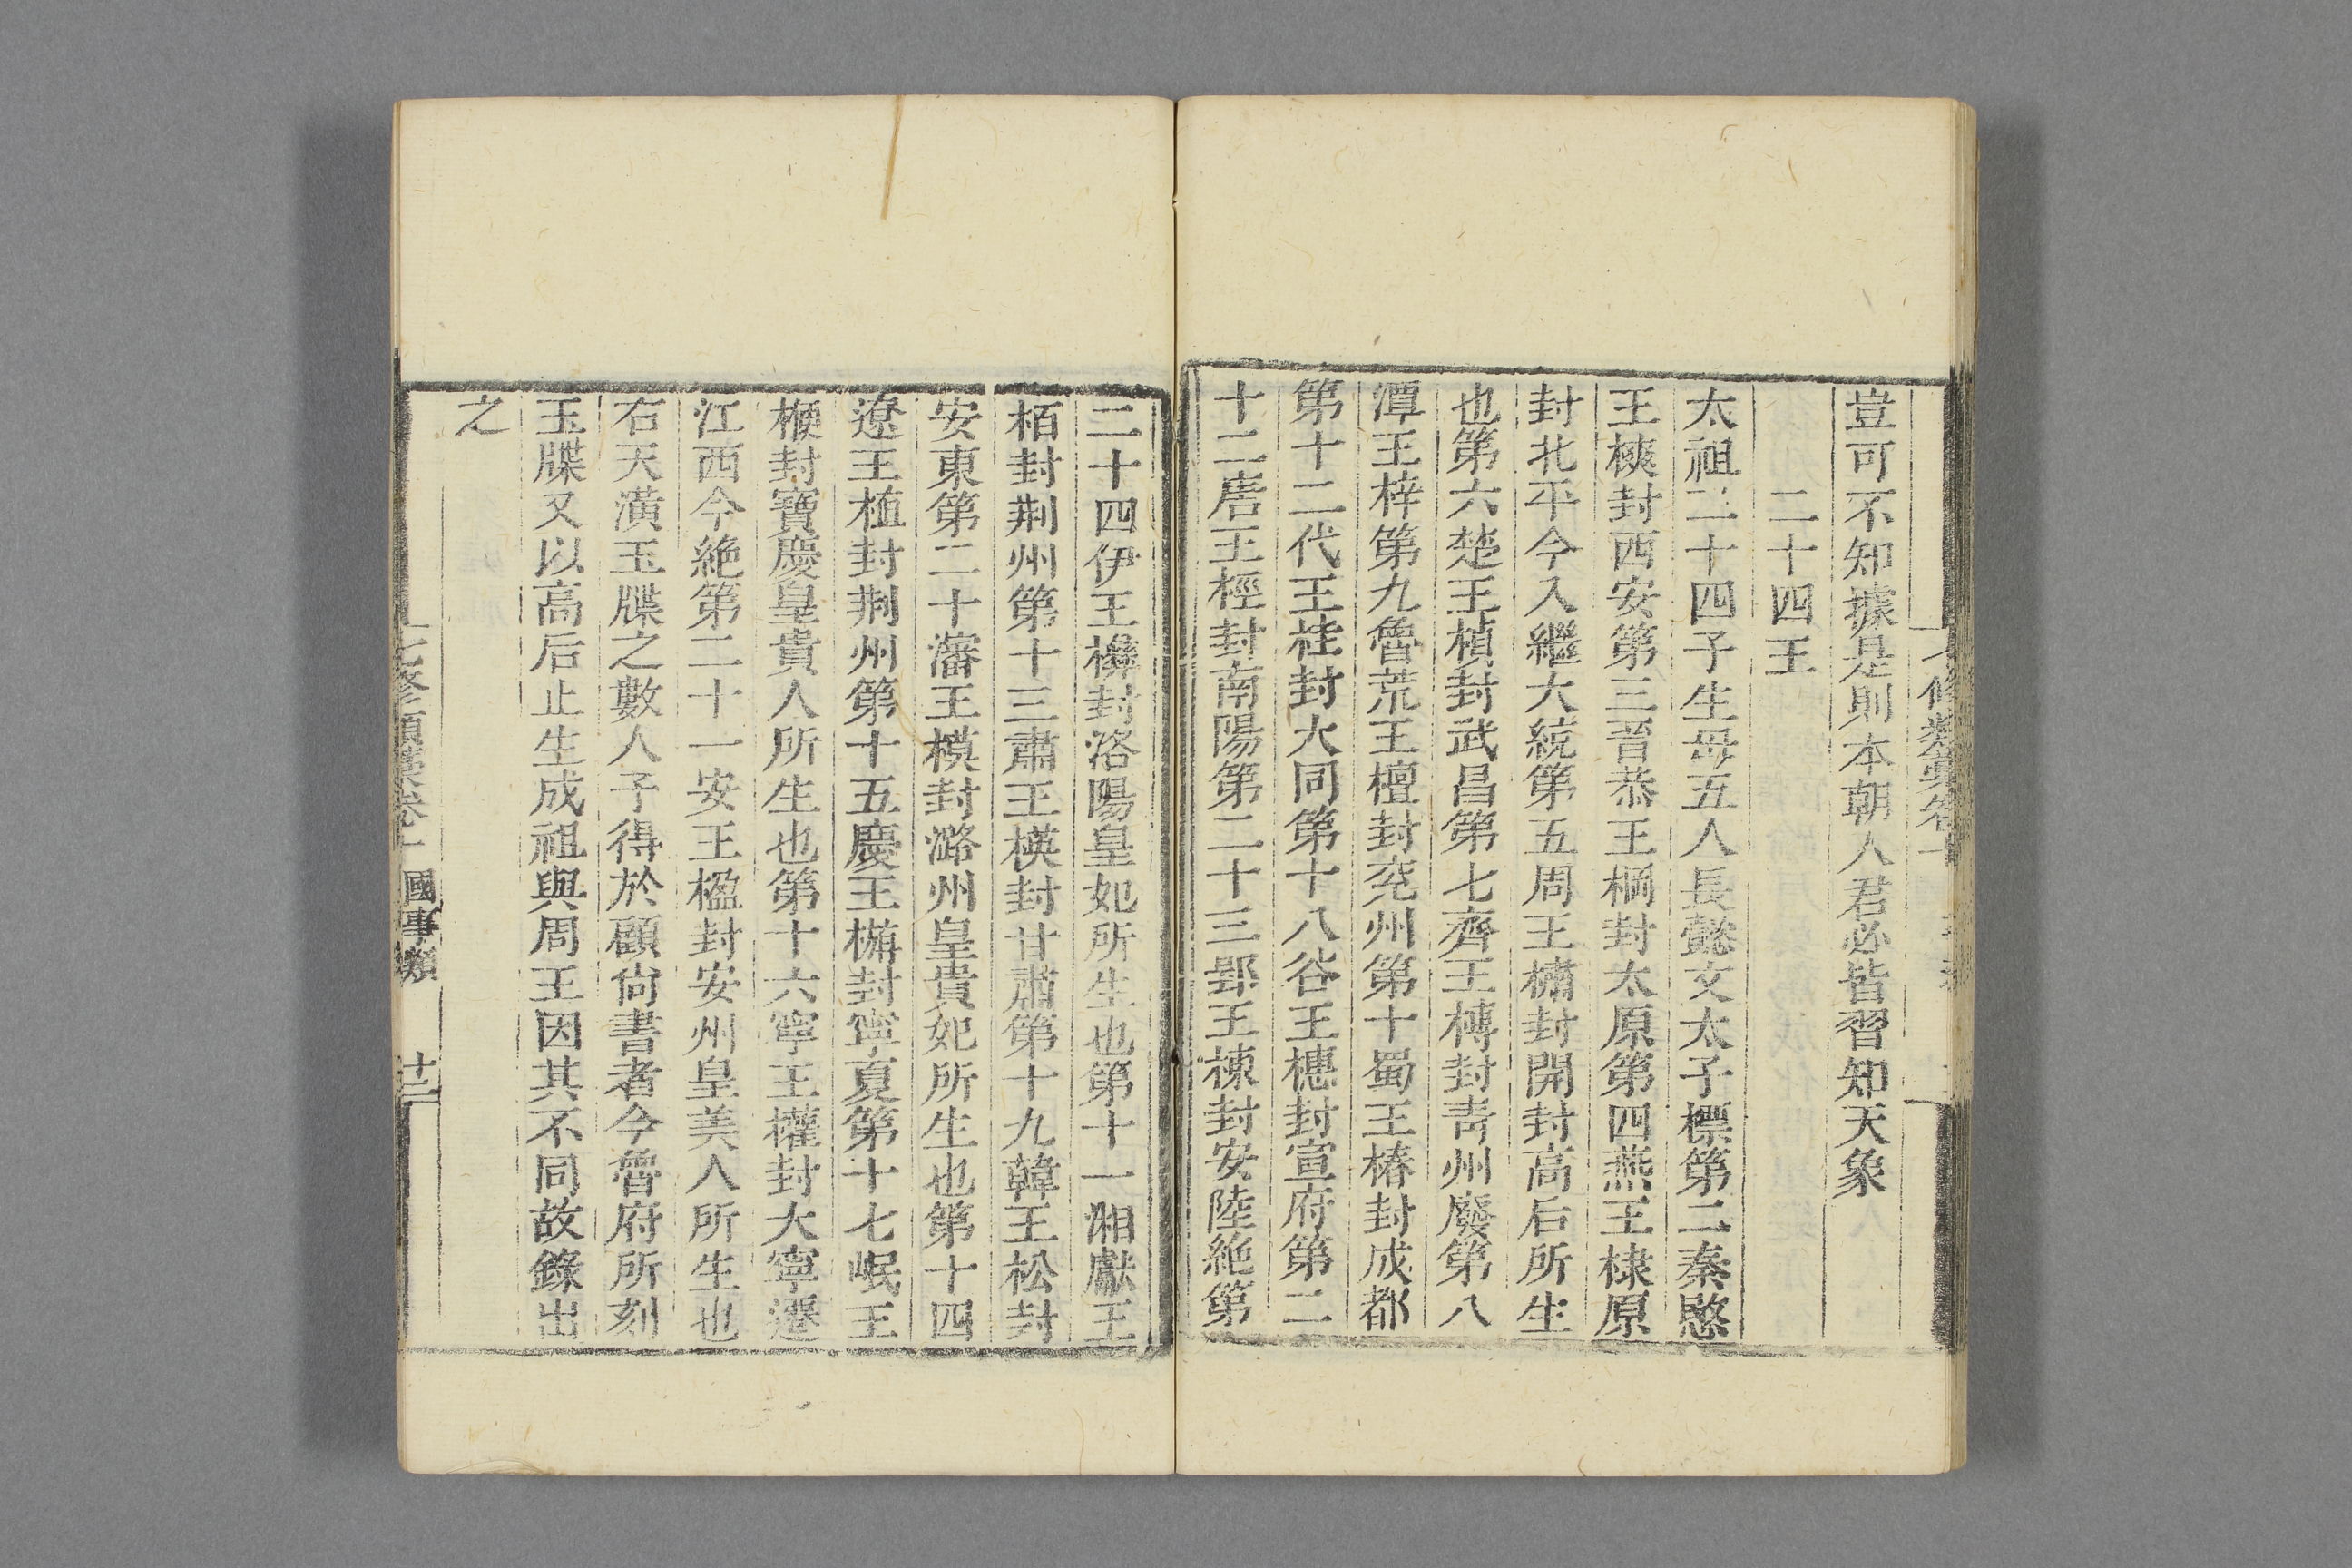 豈可不知據是則本朝人君必皆習知天象
二十四王
太祖二十四子生母五人長懿文太子標第二秦愍
王樉封西安第三晉恭王棡封太原第四燕王棣原
封北平今入繼大統第五周王橚封開封高后所生
也第六楚王楨封武昌第七齊王榑封青州廢第八
潭王梓第九魯荒王檀封兗州第十蜀王椿封成都
第十二代王桂封大同第十八谷王橞封宣府第二
十二唐王桱封南陽第二十三郢王棟封安陸絶第
二十四伊王㰘封洛陽皇妃所生也第十一湘獻王
栢封荆州第十三肅王楧封甘肅第十九韓王松封
安東第二十瀋王模封潞州皇貴妃所生也第十四
遼王植封荆州第十五慶王㮵封寧夏第十七岷王
楩封寶慶皇貴人所生也第十六寧王權封大寧遷
江西今絶第二十一安王楹封安州皇美人所生也
右天潢玉牒之數人予得於顧尚書者今魯府所刻
玉牒又以高后止生成祖與周王因其不同故錄出
之
七修類藁卷十 國事類 十二